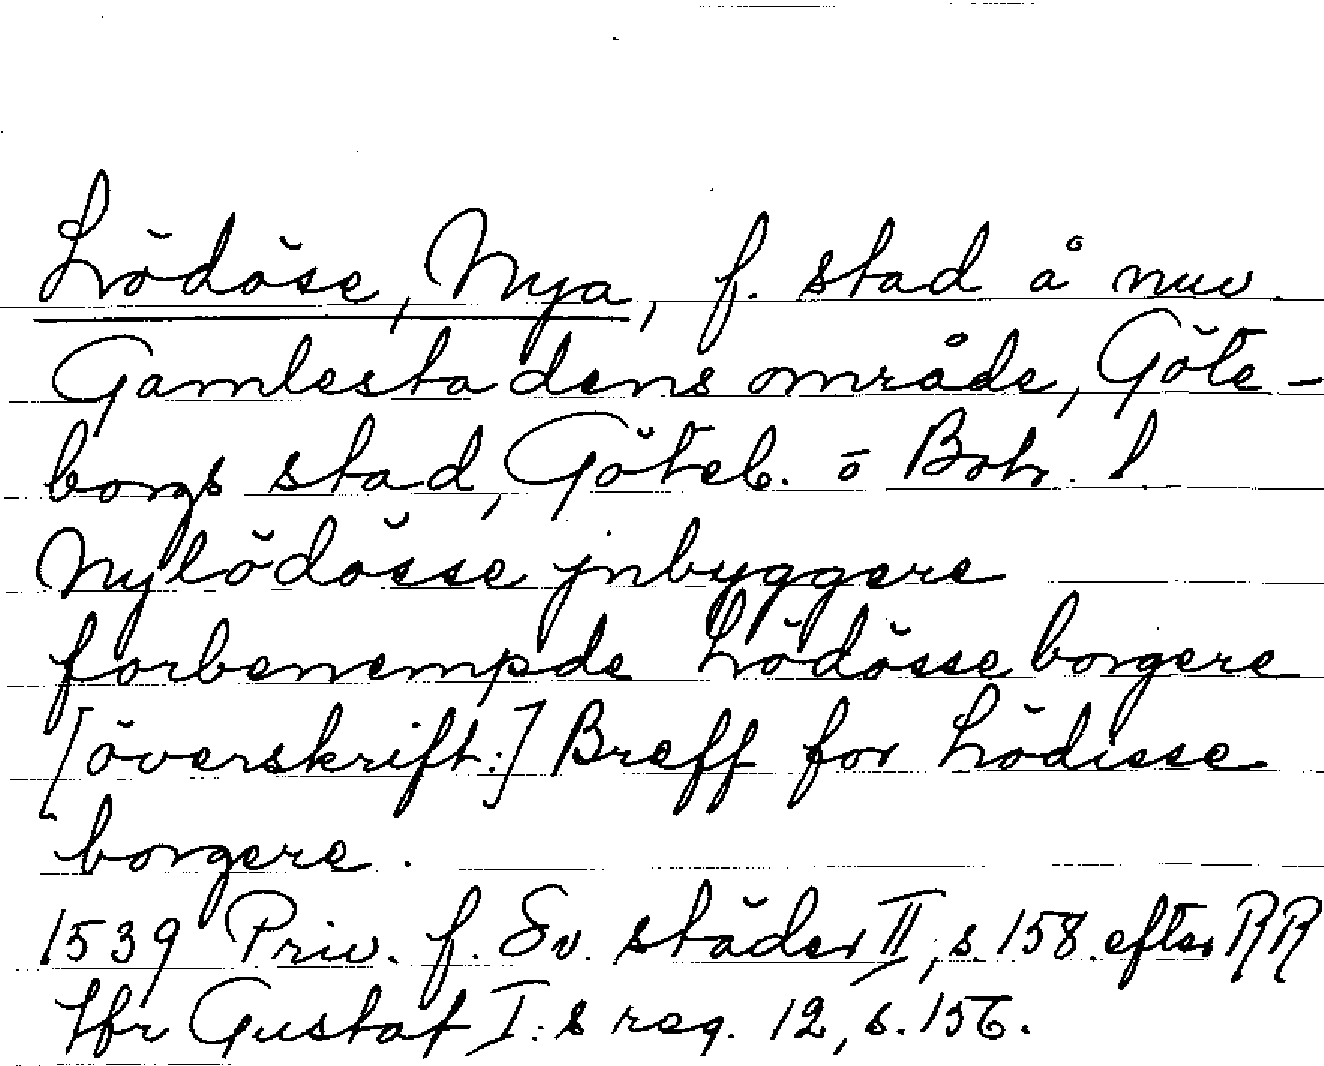 Lödöse, Nya, f. stad å nuv.
Gamlestadens område, Göte-
borgs stad, Göteb. o Boh. l
Nylödösse jnbyggere
forbenempde Lödösse borgere
[överskrift:] Breff for Lödisse
borgere.
1539 Priv. f. Sv. städer II, s. 158. efter RR
Jfr Gustaf I:s reg. 12, s. 156.